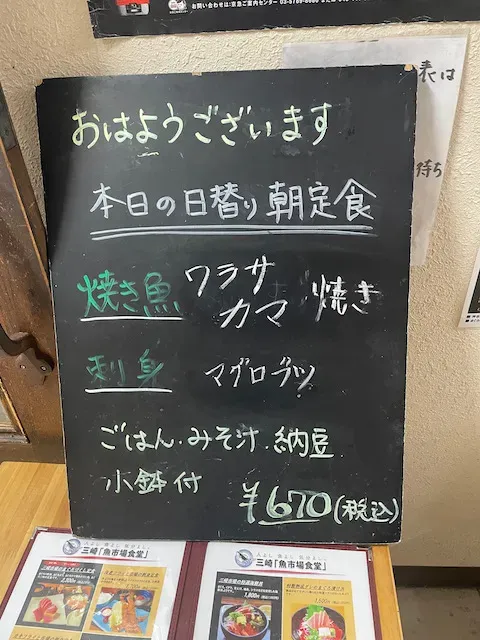 おはようございます
本日の日替り朝定食
焼き魚 ワラサ カマ 焼き
刺身 マグロブツ
ごはん・みそ汁・納豆
小鉢付 ¥670(税込)
表は
待ち
三崎「魚市場食堂」
三崎「魚市場食堂」